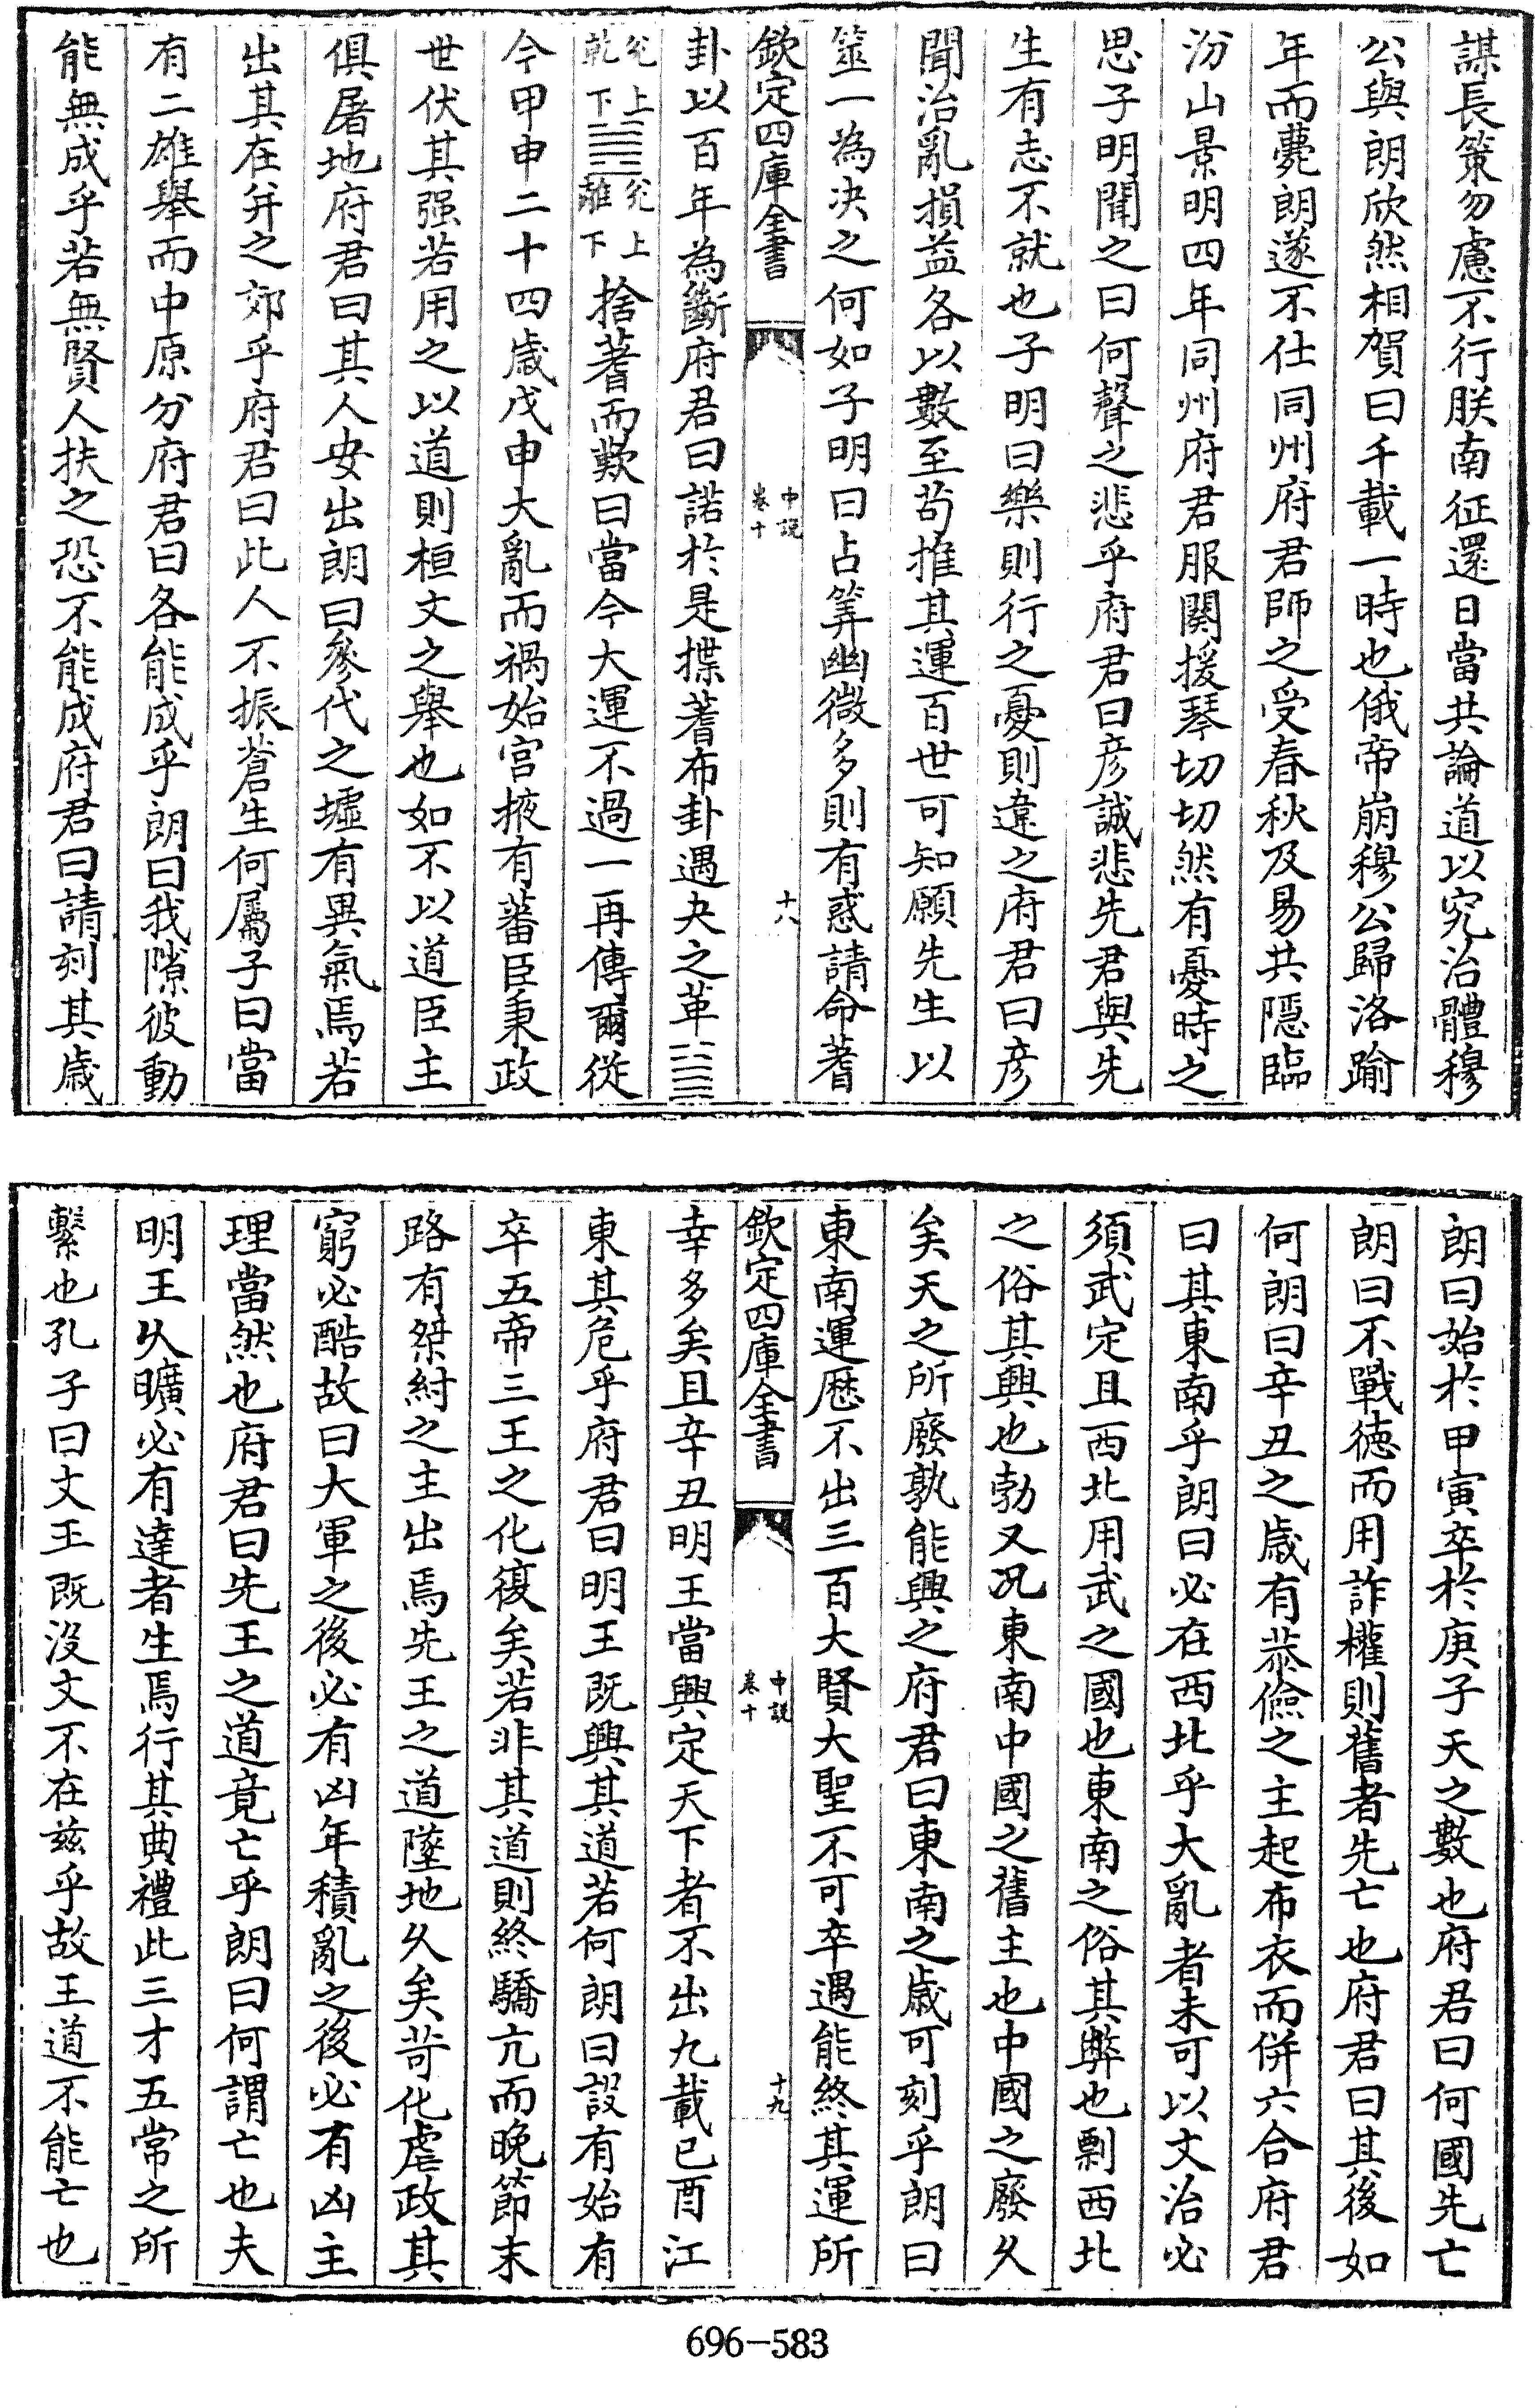 謀長策勿慮不行朕南征還日當共論道以究治體穆
公與朗欣然相賀曰千載一時也俄帝崩穆公歸洛踰
年而薨朗遂不仕同州府君師之受春秋及易共隱臨
汾山景明四年同州府君服闋援琴切切然有憂時之
思子明聞之曰何聲之悲乎府君曰彥誠悲先君與先
生有志不就也子明曰樂則行之憂則違之府君曰彥
聞治亂損益各以數至苟推其運百世可知願先生以
筮一為決之何如子明曰占筭幽微多則有惑請命蓍
欽定四庫全書
中說
卷十
十八
卦以百年為斷府君曰諾於是揲蓍布卦遇夬之革
兊上
乾下
兊上
離下
捨蓍而歎曰當今大運不過一再傳爾從
今甲申二十四歲戊申大亂而禍始宫掖有蕃臣秉政
世伏其强若用之以道則桓文之舉也如不以道臣主
俱屠地府君曰其人安出朗曰參代之墟有異氣焉若
出其在并之郊乎府君曰此人不振蒼生何屬子曰當
有二雄舉而中原分府君曰各能成乎朗曰我隙彼動
能無成乎若無賢人扶之恐不能成府君曰請刻其歲
朗曰始於甲寅卒於庚子天之數也府君曰何國先亡
朗曰不戰徳而用詐權則舊者先亡也府君曰其後如
何朗曰辛丑之歲有恭儉之主起布衣而併六合府君
曰其東南乎朗曰必在西北乎大亂者未可以文治必
須武定且西北用武之國也東南之俗其弊也剽西北
之俗其興也勃又况東南中國之舊主也中國之廢久
矣天之所廢孰能興之府君曰東南之歲可刻乎朗曰
東南運歴不出三百大賢大聖不可卒遇能終其運所
欽定四庫全書
中說
卷十
十九
幸多矣且辛丑明王當興定天下者不出九載已酉江
東其危乎府君曰明王既興其道若何朗曰設有始有
卒五帝三王之化復矣若非其道則終驕亢而晚節末
路有桀紂之主出焉先王之道墜地久矣苛化虐政其
窮必酷故曰大軍之後必有凶年積亂之後必有凶主
理當然也府君曰先王之道竟亡乎朗曰何謂亡也夫
明王久曠必有達者生焉行其典禮此三才五常之所
繫也孔子曰文王既没文不在兹乎故王道不能亡也
696-583